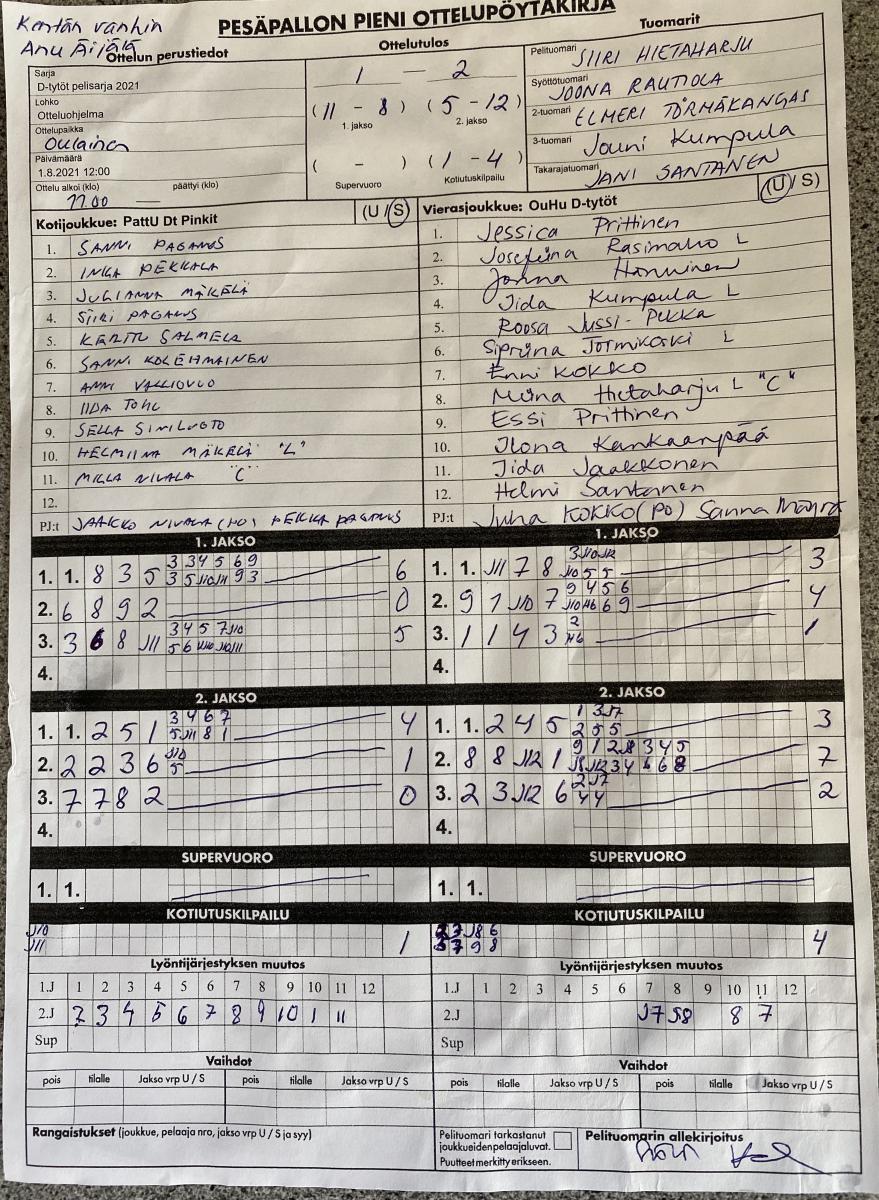 Kentän vanhin
Anu Äijälä
PESÄPALLON PIENI OTTELUPÖYTÄKIRJA
Ottelun perustiedot
Ottelutulos
Tuomarit
Sarja
D-tytöt pelisarja 2021
Lohko
Otteluohjelma
Ottelupaikka
Oulainen
Päivämäärä
1.8.2021 12:00
Ottelu alkoi (klo) päättyi (klo)
11.00 —
1 — 2
(11 - 8) (5 - 12)
1. jakso 2. jakso
( - ) (1 - 4)
Supervuoro Kotiutuskilpailu
Pelituomari SIIRI HIETAHARJU
Syöttötuomari JOONA RAUTIOLA
2-tuomari ELMERI TÖRMÄKANGAS
3-tuomari Jouni Kumpula
Takarajatuomari JANI SANTANEN
Kotijoukkue: PattU Dt Pinkit (U / S)
1. SANNI PAGANUS
2. INKA PEKKALA
3. JULIANNA MÄKELÄ
4. SIIRI PAGANUS
5. KERTTU SALMELA
6. SANNI KOLEHMAINEN
7. ANNI
8. IIDA
9. SELLA SINILUOTO
10. HELMIINA MÄKELÄ "L"
11. MILLA NIVALA "C"
12.
PJ:t JAAKKO NIVALA (PO) PEKKA PAGANUS
Vierasjoukkue: OuHu D-tytöt (U / S)
1. Jessica Prittinen
2. Josefiina Rasimaho L
3. Jonna Hanninen
4. Iida Kumpula L
5. Roosa Jussi-Pekka
6. Sipriina Tormikoski L
7. Enni KOKKO
8. Miina Hietaharju L "C"
9. Essi Prittinen
10. Ilona Kankaanpää
11. Iida Jaakkonen
12. Helmi Santanen
PJ:t Juha KOKKO (PO) Sanna
1. JAKSO
1. 1. 8 3 5 3 3 4 5 6 9 6
3 5 J10 J11 9 3
2. 6 8 9 2 0
3. 3 6 8 J11 3 4 5 7 J10 5
4.
1. JAKSO
1. 1. J11 7 8 3 J10 J12 3
J10 5 5
2. 9 1 J10 7 9 4 5 6 4
J10 H6 6 9
3. 1 1 4 3 2 1
H6
4.
2. JAKSO
1. 1. 2 5 1 3 4 6 7 4
5 J11 8 1
2. 2 2 3 6 J10 1
5
3. 7 7 8 2 0
4.
2. JAKSO
1. 1. 2 4 5 1 3 J7 3
2 5 5
2. 8 8 J12 1 9 1 2 J8 3 4 5 7
J8 J12 3 4 6 6 8
3. 2 3 J12 6 2 J7 2
4 4
4.
SUPERVUORO
1. 1.
SUPERVUORO
1. 1.
KOTIUTUSKILPAILU
J10 1
J11
KOTIUTUSKILPAILU
J8 6 4
7 9 8
Lyöntijärjestyksen muutos
1.J 1 2 3 4 5 6 7 8 9 10 11 12
2.J 2 3 4 5 6 7 8 9 10 1 11
Sup
Lyöntijärjestyksen muutos
1.J 1 2 3 4 5 6 7 8 9 10 11 12
2.J J7 J8 8 7
Sup
Vaihdot
pois tilalle Jakso vrp U / S pois tilalle Jakso vrp U / S
Vaihdot
pois tilalle Jakso vrp U / S pois tilalle Jakso vrp U / S
Rangaistukset (joukkue, pelaaja nro, jakso vrp U / S ja syy)
Pelituomari tarkastanut
joukkueiden pelaajaluvat.
Puutteet merkitty erikseen.
Pelituomarin allekirjoitus